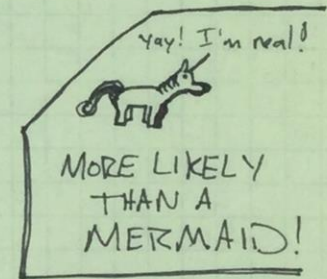 Yay! I'm real!
MORE LIKELY
THAN A
MERMAID!